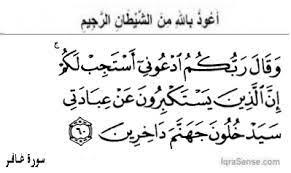 أعوذ بالله من الشيطان الرجيم
وَقَالَ رَبُّكُمُ ٱدْعُونِىٓ أَسْتَجِبْ لَكُمْ ۚ
إِنَّ ٱلَّذِينَ يَسْتَكْبِرُونَ عَنْ عِبَادَتِى
سَيَدْخُلُونَ جَهَنَّمَ دَاخِرِينَ ٦٠
سورة غافر
IqraSense.com